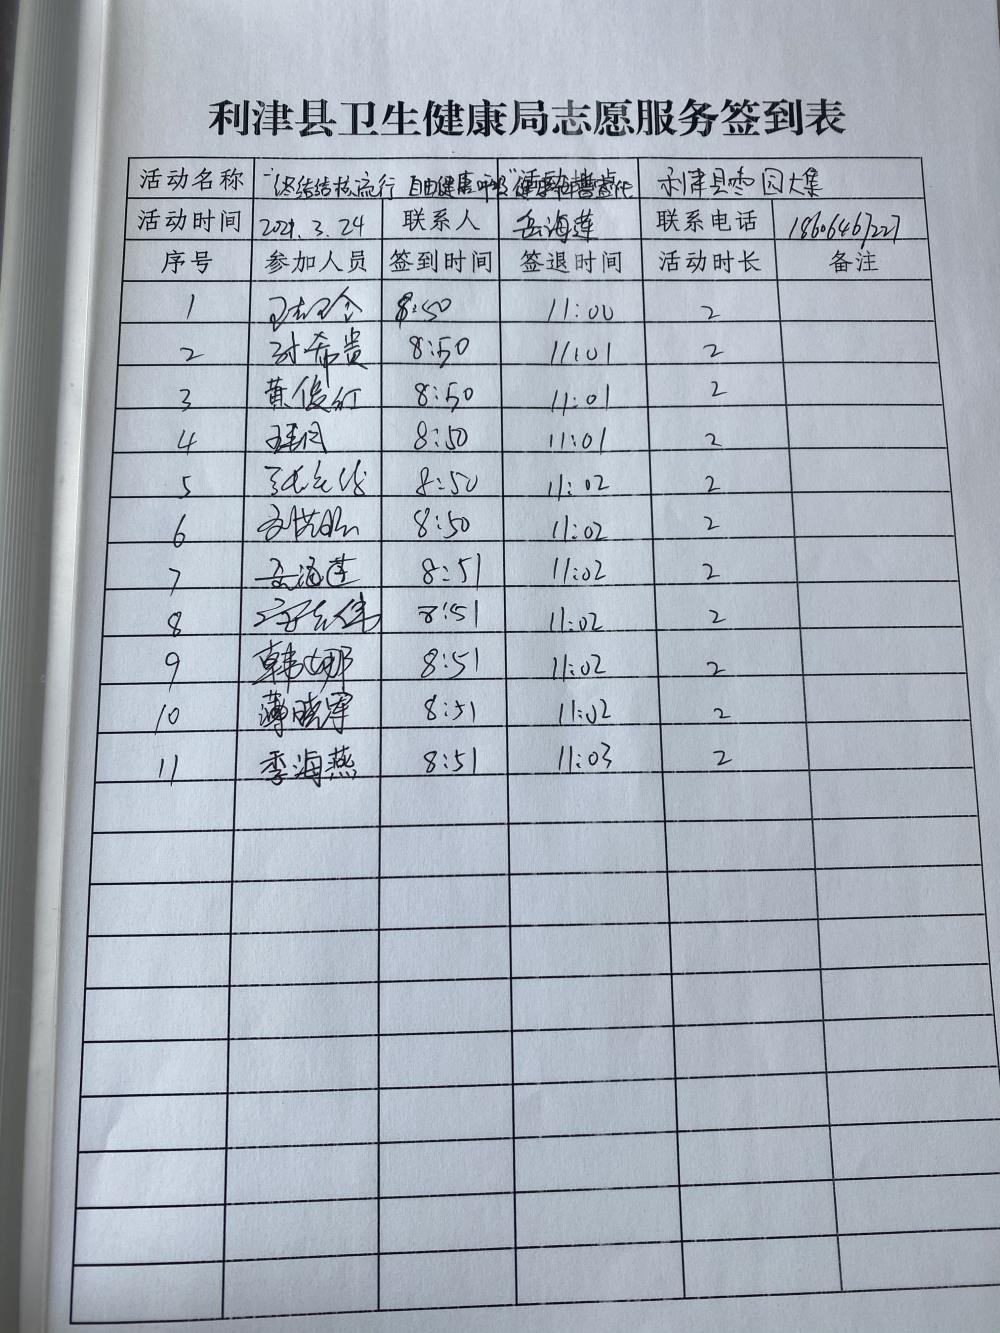 利津县卫生健康局志愿服务签到表
活动名称 "终结结核流行 自由健康呼吸" 活动地点 利津县枣园大集
活动时间 2021.3.24 联系人 岳海莲 联系电话 18606461227
序号 参加人员 签到时间 签退时间 活动时长 备注
1 8:50 11:00 2
2 希贵 8:50 11:01 2
3 黄俊红 8:50 11:01 2
4 8:50 11:01 2
5 8:50 11:02 2
6 8:50 11:02 2
7 岳海莲 8:51 11:02 2
8 8:51 11:02 2
9 韩娜 8:51 11:02 2
10 薄晓军 8:51 11:02 2
11 季海燕 8:51 11:03 2